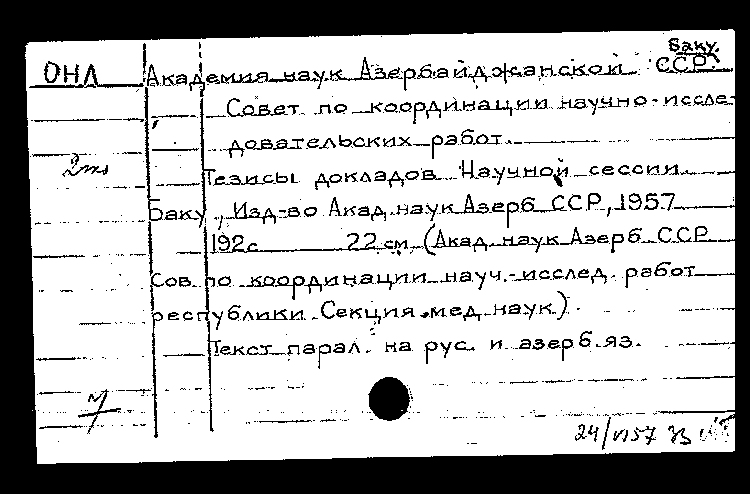 Баку.
ОНЛ Академия наук Азербайджанской ССР.
Совет по координации научно-иссле-
довательских работ.
2тл
Тезисы докладов Научной сессии.
Баку, Изд-во Акад. наук Азерб. ССР, 1957
192 с. 22 см. (Акад. наук Азерб. ССР
Сов. по координации науч.-исслед. работ
республики. Секция мед. наук).
Текст парал. на рус. и азерб. яз.
24/VI57